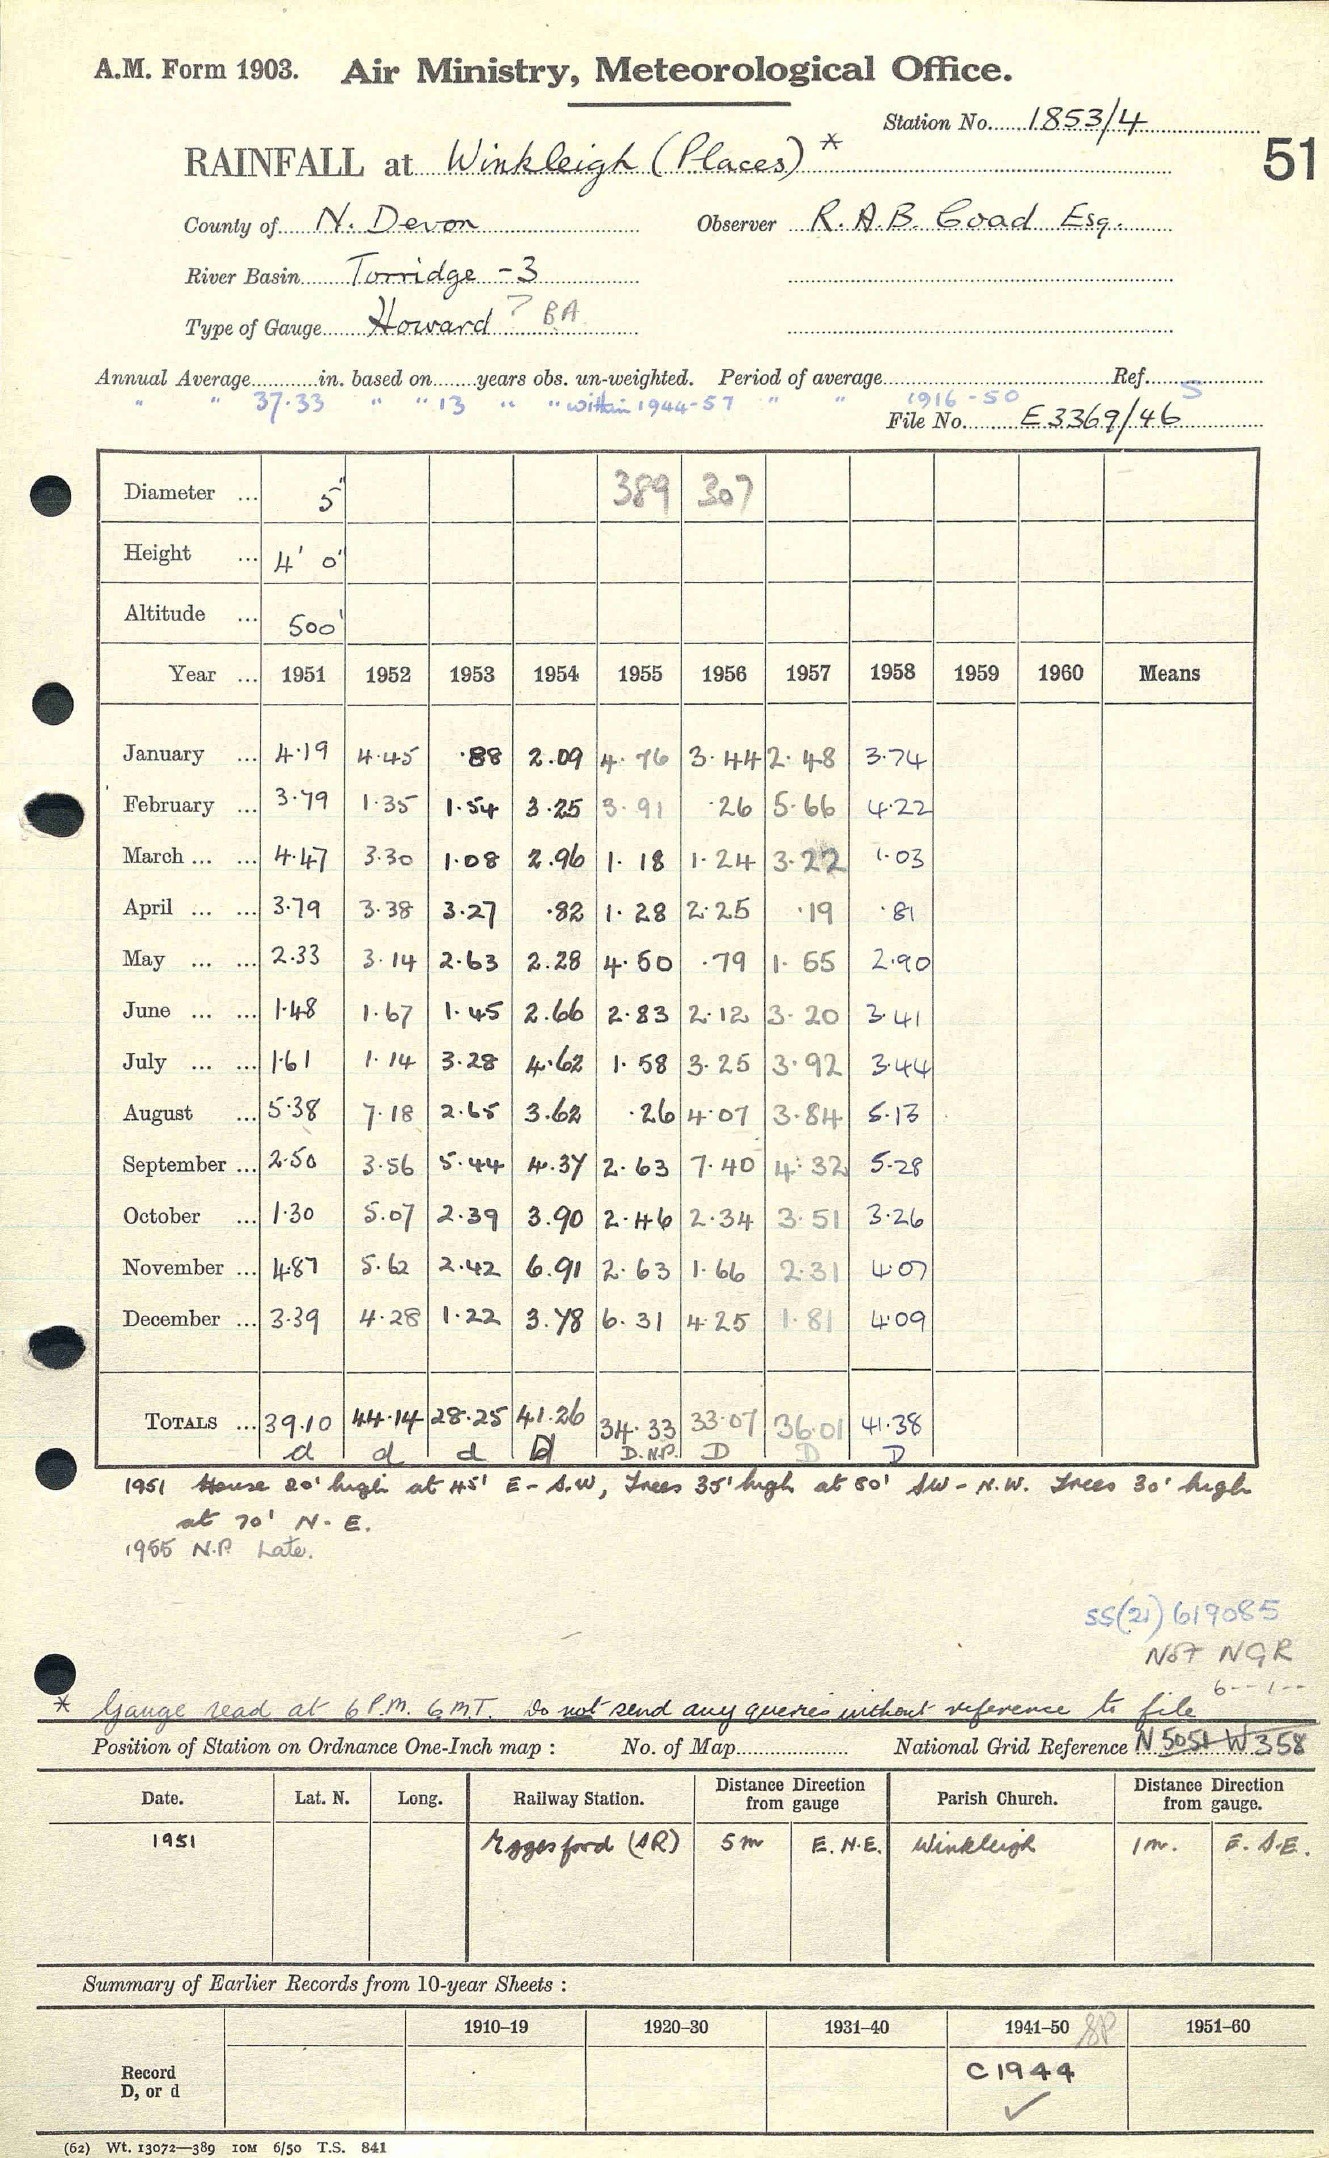 A.M. Form 1903. Air Ministry, Meteorological Office.
Station No. 1853/4
RAINFALL at Winkleigh (Places) *
51
County of N. Devon Observer R.A.B. Coad Esq.
River Basin Torridge -3
Type of Gauge Howard ? BA
Annual Average in. based on years obs. un-weighted. Period of average Ref.
" " 37.33 " " 13 " " within 1944-57 " " 1916-50 S
File No. E3369/46
Diameter ... 5" 389 307
Height ... 4' 0"
Altitude ... 500'
Year ... 1951 1952 1953 1954 1955 1956 1957 1958 1959 1960 Means
January ... 4.19 4.45 .88 2.09 4.76 3.44 2.48 3.74
February ... 3.79 1.35 1.54 3.25 3.91 .26 5.66 4.22
March ... ... 4.47 3.30 1.08 2.96 1.18 1.24 3.22 1.03
April ... ... 3.79 3.38 3.27 .82 1.28 2.25 .19 .81
May ... ... 2.33 3.14 2.63 2.28 4.50 .79 1.55 2.90
June ... ... 1.48 1.67 1.45 2.66 2.83 2.12 3.20 3.41
July ... ... 1.61 1.14 3.28 4.62 1.58 3.25 3.92 3.44
August ... 5.38 7.18 2.65 3.62 .26 4.07 3.84 5.13
September ... 2.50 3.56 5.44 4.37 2.63 7.40 4.32 5.28
October ... 1.30 5.07 2.39 3.90 2.46 2.34 3.51 3.26
November ... 4.87 5.62 2.42 6.91 2.63 1.66 2.31 4.07
December ... 3.39 4.28 1.22 3.78 6.31 4.25 1.81 4.09
TOTALS ... 39.10 44.14 28.25 41.26 34.33 33.07 36.01 41.38
d d d D D.N.P. D D D
1951 House 20' high at 45' E - S.W, Trees 35' high at 50' SW - N.W. Trees 30' high
at 70' N - E.
1955 N.P. Late.
SS(21) 619085
NOT NGR
6 - - 1 - -
* Gauge read at 6 P.M. G.M.T. Do not send any queries without reference to file
Position of Station on Ordnance One-Inch map : No. of Map National Grid Reference N 5051 W 358
Date. Lat. N. Long. Railway Station. Distance from gauge Direction Parish Church. Distance from gauge. Direction
1951 Eggesford (SR) 5m E.N.E. Winkleigh 1m. E.S.E.
Summary of Earlier Records from 10-year Sheets :
1910-19 1920-30 1931-40 1941-50 SP 1951-60
Record
D, or d C1944 ✓
(62) Wt. 13072—389 10M 6/50 T.S. 841